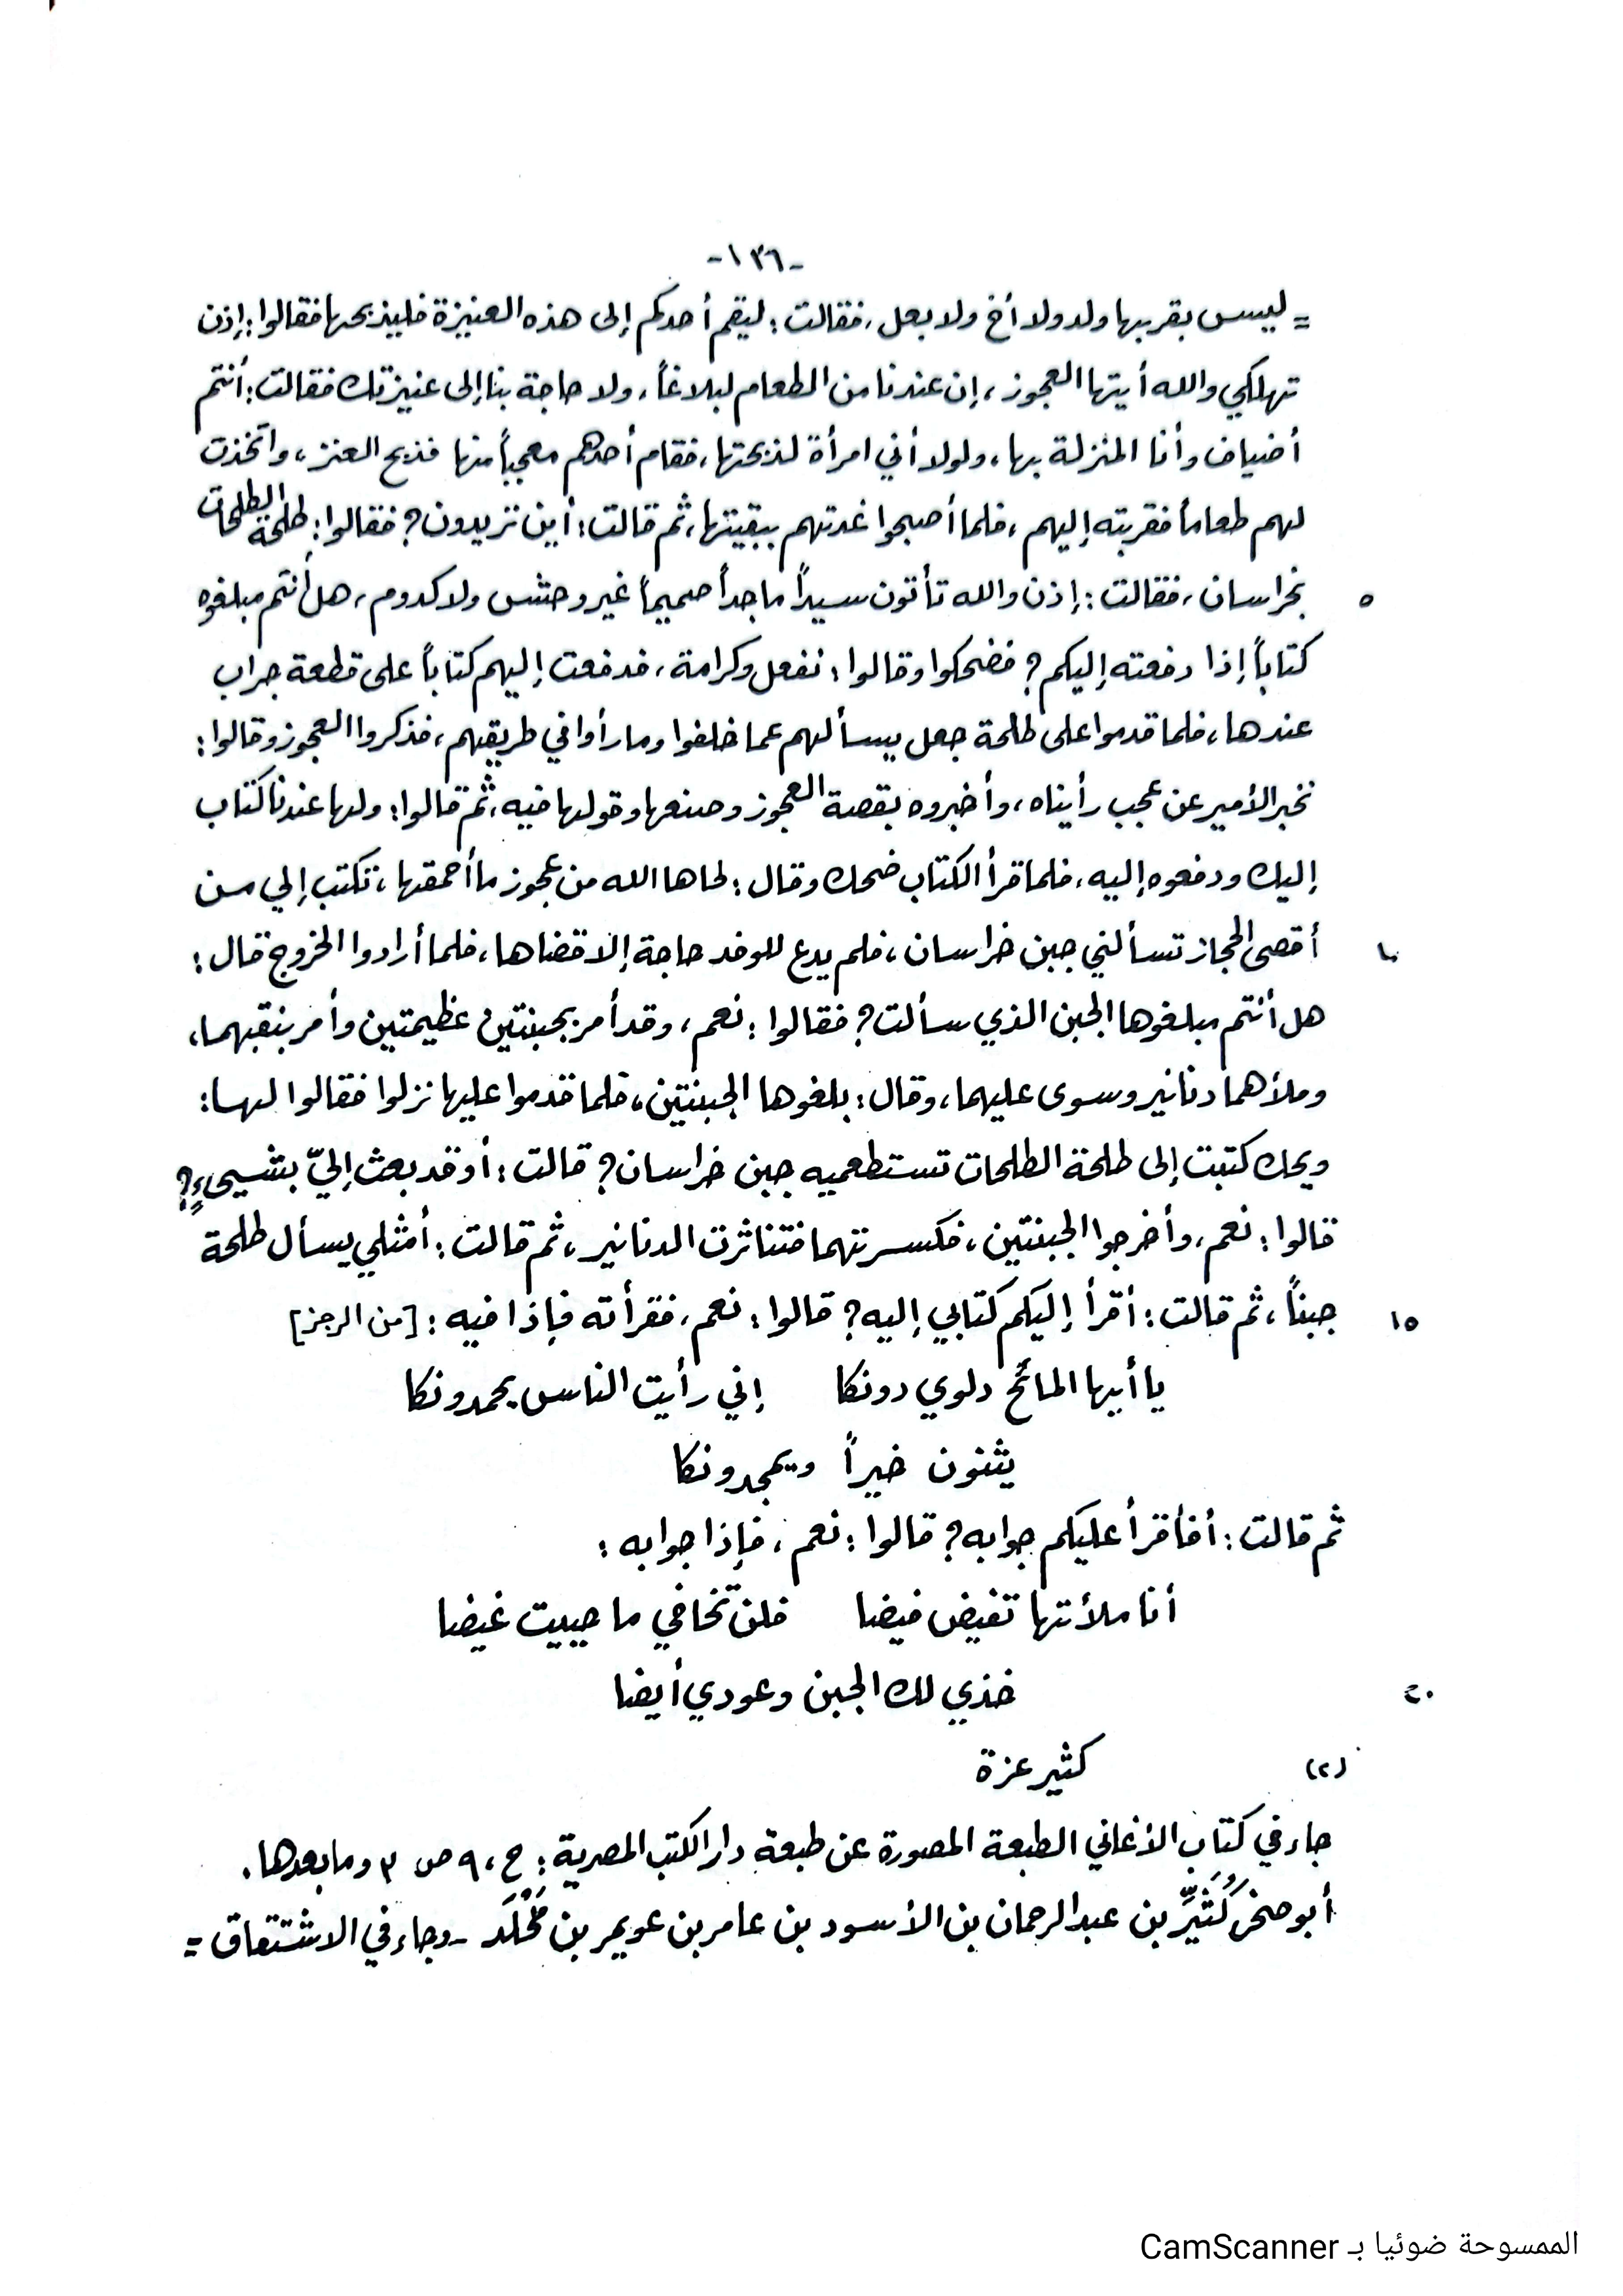 -١٣٦-
= ليس بقربها ولد ولا أخ ولا بعل، فقالت: ليقم أحدكم إلى هذه العنيزة فليذبحها فقالوا: إذن
تهلكي والله أيتها العجوز، إن عندنا من الطعام لبلاغاً، ولا حاجة بنا إلى عنيزتك فقالت: أنتم
أضياف وأنا المنزلة بها، ولولا أني امرأة لذبحتها، فقام أحدهم معجباً منها فذبح العنز، واتخذت
لهم طعاماً فقربته إليهم، فلما أصبحوا غدتهم ببقيتها، ثم قالت: أين تريدون؟ فقالوا: طلحة الطلحات
بخراسان، فقالت: إذن والله تأتون سيداً ماجداً صميماً غير وحش ولا كدوم، هل أنتم مبلغوه
٥
كتاباً إذا دفعته إليكم؟ فضحكوا وقالوا: نفعل وكرامة، فدفعت إليهم كتاباً على قطعة جراب
عندها، فلما قدموا على طلحة جعل يسألهم عما خلفوا وما رأوا في طريقهم، فذكروا العجوز وقالوا:
نخبر الأمير عن عجب رأيناه، وأخبروه بقصة العجوز وصنعها وقولها فيه، ثم قالوا: ولها عندنا كتاب
إليك ودفعوه إليه، فلما قرأ الكتاب ضحك وقال: لحاها الله من عجوز ما أحمقها، تكتب إلي من
أقصى الحجاز تسألني جبن خراسان، فلم يدع للوفد حاجة إلا قضاها، فلما أرادوا الخروج قال:
١٠
هل أنتم مبلغوها الجبن الذي سألت؟ فقالوا: نعم، وقد أمر بجبنتين عظيمتين وأمر بنقبهما،
وملأهما دنانير وسوى عليهما، وقال: بلغوها الجبنتين، فلما قدموا عليها نزلوا فقالوا لها:
ويحك كتبت إلى طلحة الطلحات تستطعميه جبن خراسان؟ قالت: أوقد بعث إليّ بشيىءٍ؟
قالوا: نعم، وأخرجوا الجبنتين، فكسرتهما فتناثرت الدنانير، ثم قالت: أمثلي يسأل طلحة
جبناً، ثم قالت: أقرأ إليكم كتابي إليه؟ قالوا: نعم، فقرأته فإذا فيه: [من الرجز]
١٥
يا أيها المائح دلوي دونكا    إني رأيت الناس يحمدونكا
يثنون خيراً ويمجدونكا
ثم قالت: أفأقرأ عليكم جوابه؟ قالوا: نعم، فإذا جوابه:
أنا ملأتها تفيض فيضا    فلن تخافي ما حييت غيضا
خذي لك الجبن وعودي أيضا
٢٠
(٢) كثير عزة
جاء في كتاب الأغاني الطبعة المصورة عن طبعة دار الكتب المصرية: ج، ٩ ص ٣ وما بعدها.
أبو صخر كُثَيِّر بن عبد الرحمان بن الأسود بن عامر بن عويمر بن مَخْلَد - وجاء في الاشتقاق =
الممسوحة ضوئيا بـ CamScanner